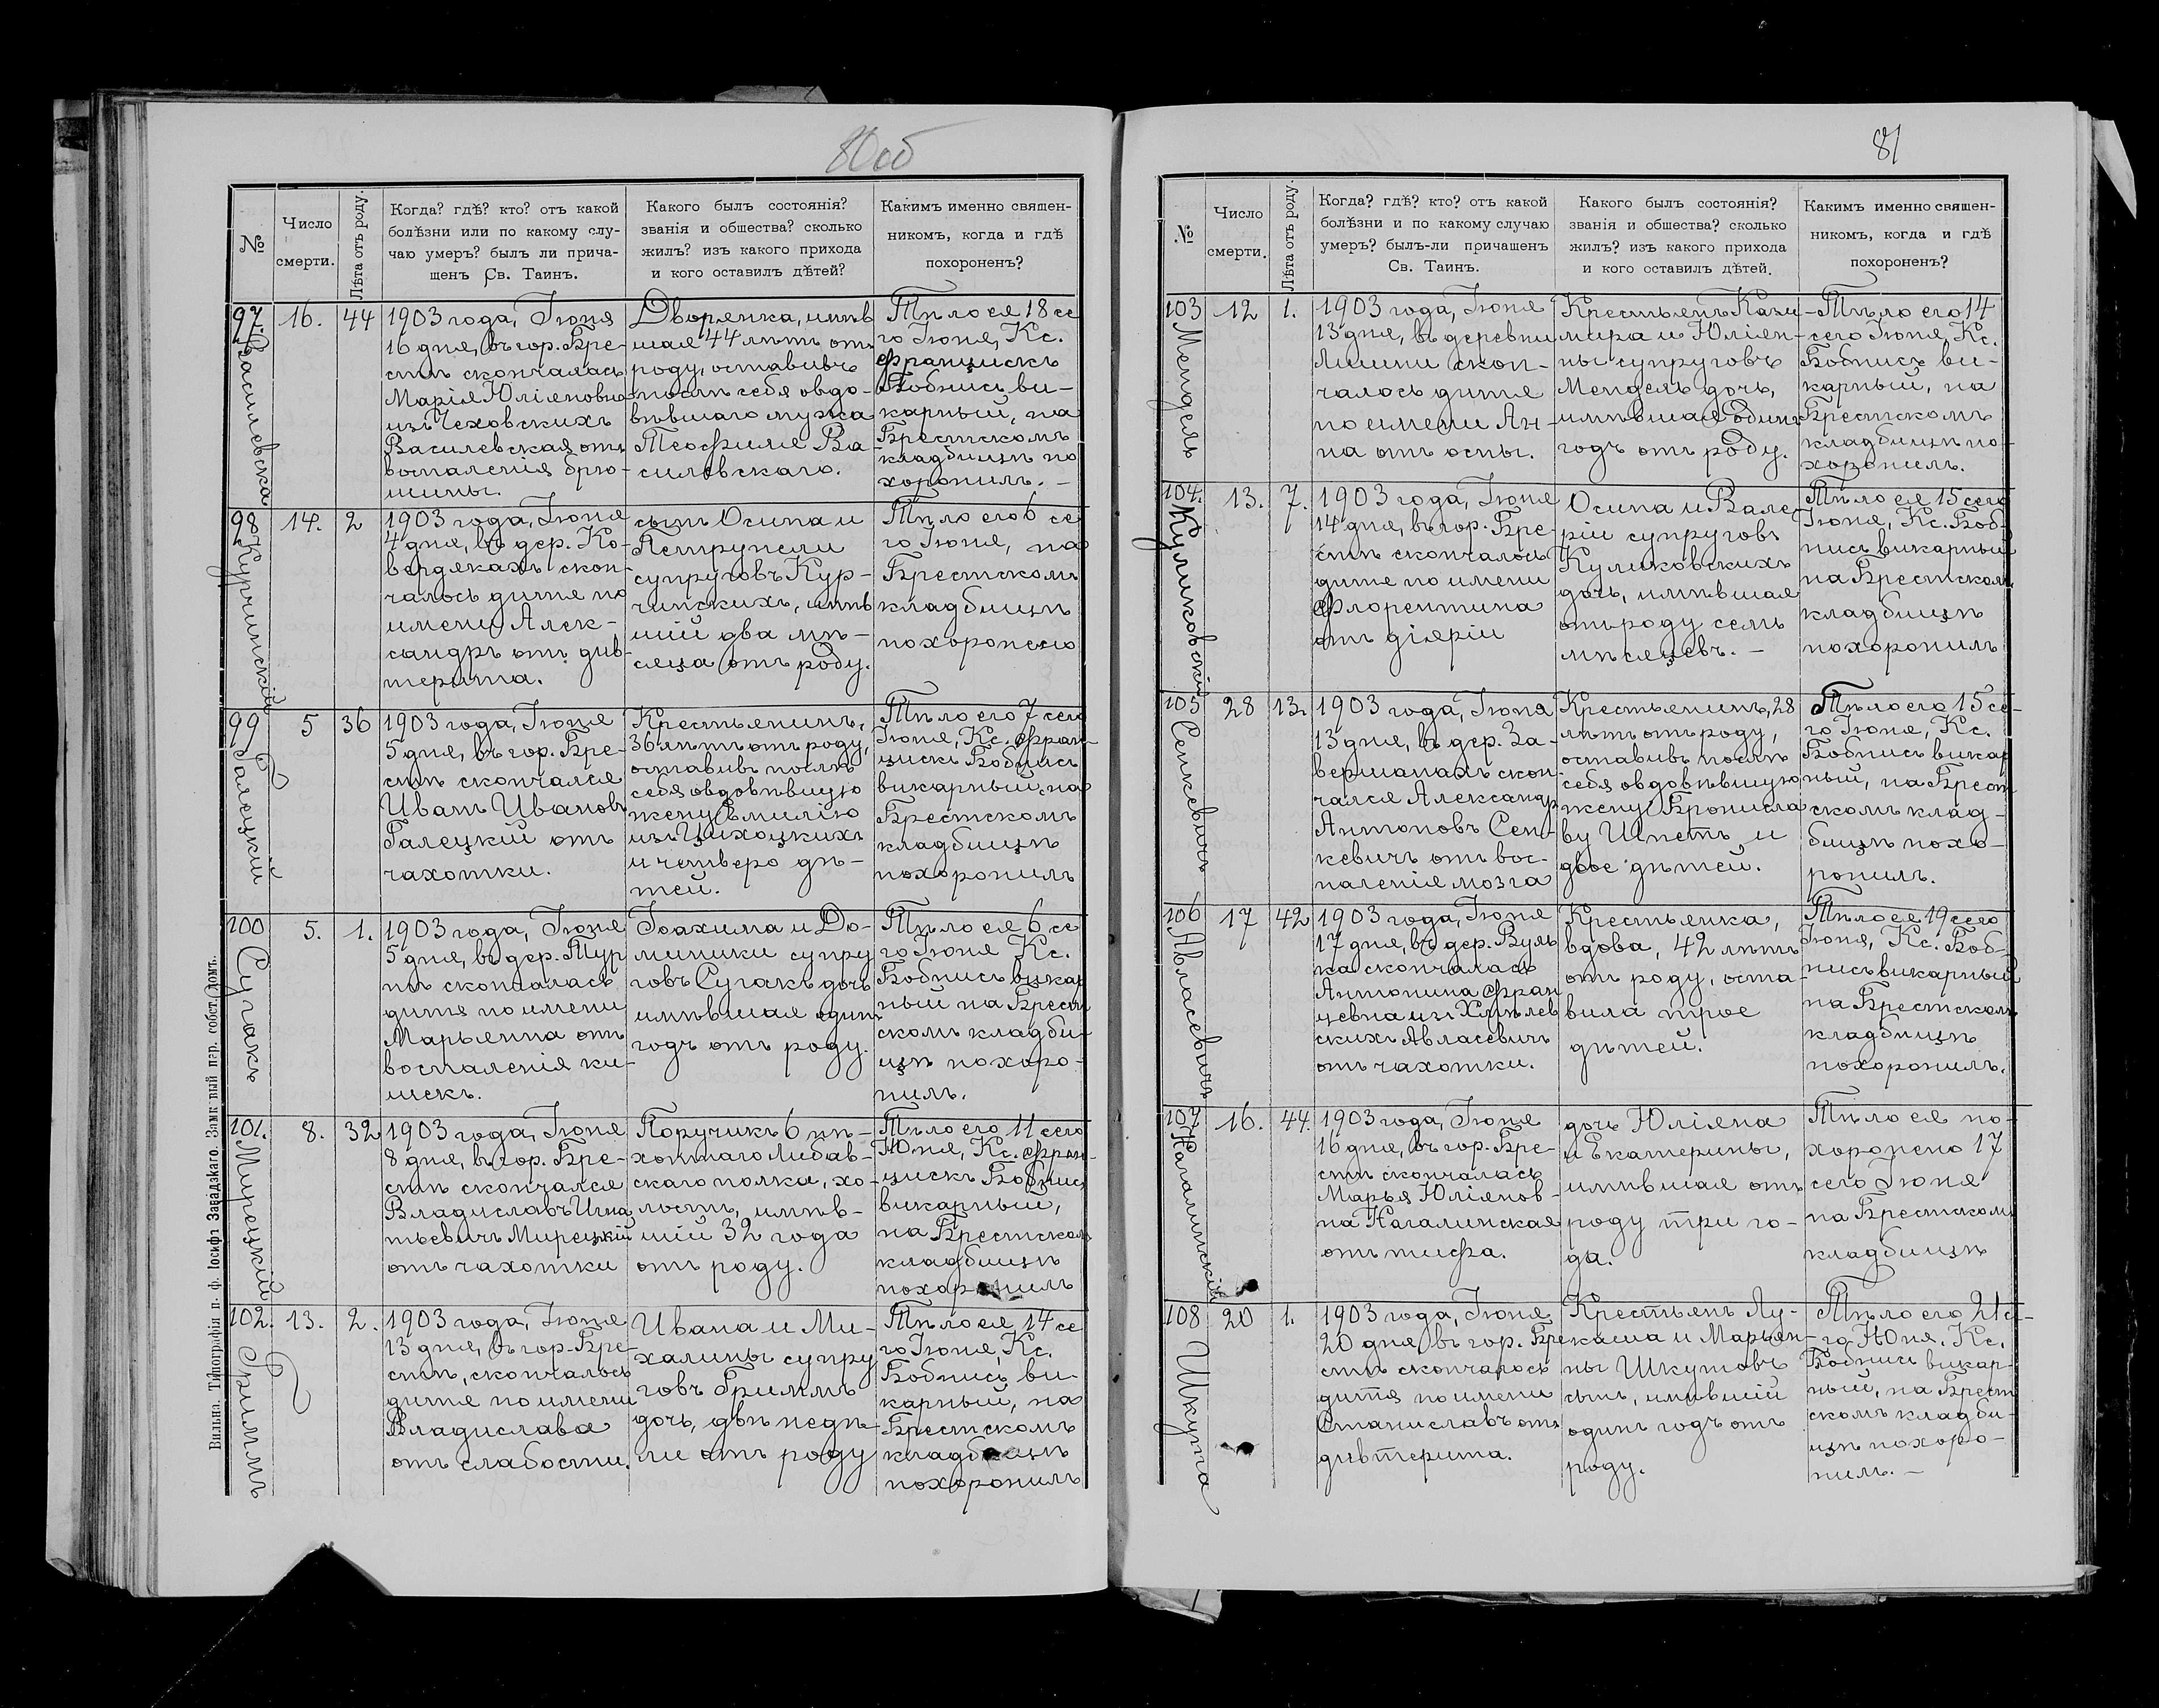 80об
№
Число
смерти.
Лѣта отъ роду.
Когда? гдѣ? кто? отъ какой
болѣзни или по какому слу-
чаю умеръ? былъ ли прича-
щенъ Св. Таинъ.
Какого былъ состоянія?
званія и общества? сколько
жилъ? изъ какого прихода
и кого оставилъ дѣтей?
Какимъ именно священ-
никомъ, когда и гдѣ
похороненъ?
97.
Василевская
16.
44
1903 года, Іюня
16 дня, въ гор. Бре-
стѣ скончалась
Марія Юліяновна
изъ Чеховскихъ
Василевская отъ
воспаленія брю-
шины.
Дворянка, имѣв
шая 44 лѣтъ отъ
роду, оставивъ
послѣ себя овдо-
вѣвшаго мужа
Теофиля Ва
силевскаго.
Тѣло ея 18 се
го Іюня, Кс.
Францискъ
Бобнисъ ви-
карный, на
Брестскомъ
кладбищѣ по
хоронилъ. -
98
Курчинскій
14.
2
1903 года, Іюня
4 дня, въ дер. Ко-
вердякахъ скон-
чалось дитя по
имени Алек-
сандръ отъ диф-
терита.
сынъ Осипа и
Петрунели
супруговъ Кур-
чинскихъ, имѣв
шій два мѣ-
сяца отъ роду.
Тѣло его 6 се
го Іюня, на
Брестскомъ
кладбищѣ
похоронено
99
Галецкій
5
36
1903 года, Іюня
5 дня, въ гор. Бре-
стѣ скончался
Иванъ Ивановъ
Галецкій отъ
чахотки.
Крестьянинъ,
36 лѣтъ отъ роду,
оставивъ послѣ
себя овдовѣвшую
жену Эмилію
изъ Цихоцкихъ
и четверо дѣ-
тей.
Тѣло его 7 сего
Іюня, Кс. Фран-
цискъ Бобнисъ
викарный, на
Брестскомъ
кладбищѣ
похоронилъ
100
Сугакъ
5.
1.
1903 года, Іюня
5 дня, въ дер. Тур
нѣ скончалась
дитя по имени
Марьянна отъ
воспаленія ки-
шекъ.
Іоахима и До-
миники супру
говъ Сугакъ дочь
имѣвшая одинъ
годъ отъ роду.
Тѣло ея 6 се
го Іюня Кс.
Бобнисъ викар
ный на Брест
скомъ кладби-
щѣ похоро-
нилъ.
101.
Мирецкій
8.
32
1903 года, Іюня
8 дня, въ гор. Бре-
стѣ скончался
Владиславъ Игна
тьевичъ Мирецкій
отъ чахотки
Поручикъ 6 пѣ-
хотнаго Либав-
скаго полка, хо-
лостъ, имѣв-
шій 32 года
отъ роду.
Тѣло его 11 сего
Юня, Кс. Фран-
цискъ Бобнисъ
викарный,
на Брестскомъ
кладбищѣ
похоронилъ
102.
Гриммъ
13.
2.
1903 года, Іюня
13 дня, въ гор. Бре-
стѣ, скончалось
дитя по имени
Владислава
отъ слабости.
Ивана и Ми-
халины супру
говъ Гриммъ
дочь, двѣ недѣ-
ли отъ роду
Тѣло ея 14 се
го Іюня, Кс.
Бобнисъ ви-
карный, на
Брестскомъ
кладбищѣ
похоронилъ
Вильна. Типографія п. ф. Іосифъ Завадзкаго. Замковый пер. собст. домъ.
81
№
Число
смерти.
Лѣта отъ роду.
Когда? гдѣ? кто? отъ какой
болѣзни и по какому случаю
умеръ? былъ-ли причащенъ
Св. Таинъ.
Какого былъ состоянія?
званія и общества? сколько
жилъ? изъ какого прихода
и кого оставилъ дѣтей.
Какимъ именно священ-
никомъ, когда и гдѣ
похороненъ?
103
Мендель
12
1.
1903 года, Іюня
13 дня, въ деревни
Лишни скон-
чалось дитя
по имени Ан-
на отъ оспы.
Крестьянъ Кази-
мира и Юліян-
ны супруговъ
Мендель дочь,
имѣвшая одинъ
годъ отъ роду.
Тѣло его 14
сего Іюня, Кс.
Бобнисъ ви-
карный, на
Брестскомъ
кладбищѣ по-
хоронилъ.
104.
Куликовскій
13.
7.
1903 года, Іюня
14 дня, въ гор. Бре-
стѣ скончалось
дитя по имени
Флорентина
отъ діяріи
Осипа и Вале
ріи супруговъ
Куликовскихъ
дочь, имѣвшая
отъ роду семь
мѣсяцевъ. -
Тѣло ея 15 сего
Іюня, Кс. Боб-
нисъ викарный
на Брестскомъ
кладбищѣ
похоронилъ
105
Сенкевичъ
28
13.
1903 года, Іюня
13 дня, въ дер. За-
вершанахъ скон-
чался Александръ
Антоновъ Сен-
кевичъ отъ вос-
паленія мозга
Крестьянинъ, 28
лѣтъ отъ роду,
оставивъ послѣ
себя овдовѣвшую
жену Брониcла
ву Шпетъ и
двое дѣтей.
Тѣло его 15 се-
го Іюня, Кс.
Бобнисъ викар
ный, на Брест
скомъ клад-
бищѣ похо-
ронилъ.
106
Авласевичъ
17
42
1903 года, Іюня
17 дня, въ дер. Вуль
ка скончалась
Антонина Фран
цевна изъ Хмѣлев
скихъ Авласевичъ
отъ чахотки.
Крестьянка,
вдова, 42 лѣтъ
отъ роду, оста-
вила трое
дѣтей.
Тѣло ея 19 сего
Іюня, Кс. Боб-
нисъ викарный
на Брестскомъ
кладбищѣ
похоронилъ.
107
Нагалинскій
16.
44.
1903 года, Іюня
16 дня, въ гор. Бре-
стѣ скончалась
Марья Юліянов-
на Нагалинская
отъ тифа.
дочь Юліяна
и Екатерины,
имѣвшая отъ
роду три го-
да.
Тѣло ея по-
хоронено 17
сего Іюня
на Брестскомъ
кладбищѣ
108
Шкута
20
1.
1903 года, Іюня
20 дня, въ гор. Бре
стѣ скончалось
дитя по имени
Станиславъ отъ
дифтерита.
Крестьянъ Лу-
каша и Марьян-
ны Шкутовъ
сынъ, имѣвшій
одинъ годъ отъ
роду.
Тѣло его 21 се-
го Юня, Кс.
Бобнисъ викар-
ный, на Брест
скомъ кладби-
щѣ похоро-
нилъ. -